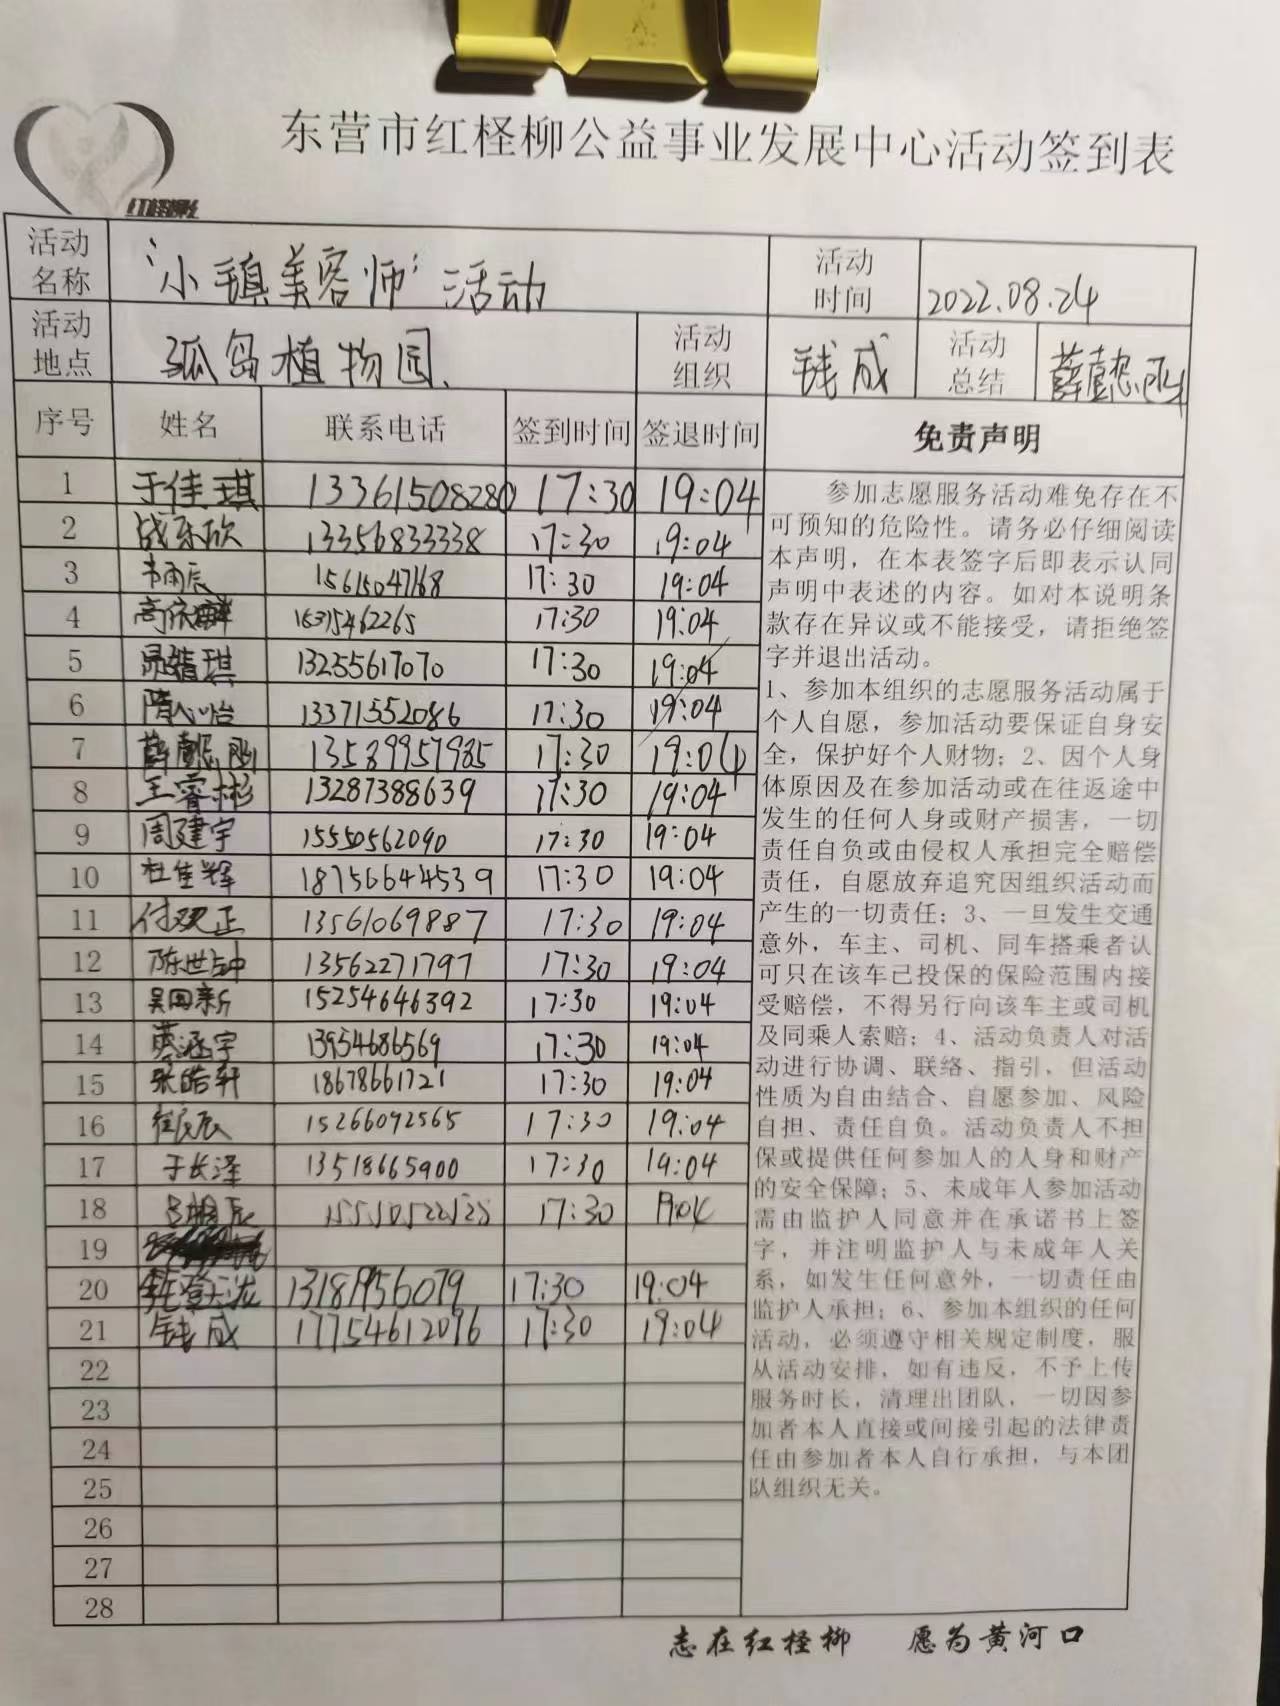 东营市红柽柳公益事业发展中心活动签到表
红柽柳
活动名称 “小镇美容师”活动 活动时间 2022.08.24
活动地点 孤岛植物园 活动组织 钱成 活动总结 薛懿函
序号 姓名 联系电话 签到时间 签退时间 免责声明
1 于佳琪 13361508280 17:30 19:04
2 战乐欣 13356833338 17:30 19:04
3 韦雨辰 15615047168 17:30 19:04
4 高依麟 17:30 19:04
5 琪 13255617070 17:30 19:04
6 隋心怡 13371552086 17:30 19:04
7 薛懿函 13589957985 17:30 19:04
8 王睿彬 13287388639 17:30 19:04
9 周建宇 15550562090 17:30 19:04
10 杜佳辉 18756644539 17:30 19:04
11 付观正 13561069887 17:30 19:04
12 陈世翀 13562271797 17:30 19:04
13 吴田新 15254646392 17:30 19:04
14 蔡涵宇 13954686569 17:30 19:04
15 张皓轩 18678661721 17:30 19:04
16 辰 15266092565 17:30 19:04
17 于长泽 13518665900 17:30 19:04
18 辰 17:30 19:04
19
20 13181956079 17:30 19:04
21 钱成 17754612096 17:30 19:04
22
23
24
25
26
27
28
参加志愿服务活动难免存在不
可预知的危险性。请务必仔细阅读
本声明，在本表签字后即表示认同
声明中表述的内容。如对本说明条
款存在异议或不能接受，请拒绝签
字并退出活动。
1、参加本组织的志愿服务活动属于
个人自愿，参加活动要保证自身安
全，保护好个人财物；2、因个人身
体原因及在参加活动或在往返途中
发生的任何人身或财产损害，一切
责任自负或由侵权人承担完全赔偿
责任，自愿放弃追究因组织活动而
产生的一切责任；3、一旦发生交通
意外，车主、司机、同车搭乘者认
可只在该车已投保的保险范围内接
受赔偿，不得另行向该车主或司机
及同乘人索赔；4、活动负责人对活
动进行协调、联络、指引，但活动
性质为自由结合、自愿参加、风险
自担、责任自负。活动负责人不担
保或提供任何参加人的人身和财产
的安全保障；5、未成年人参加活动
需由监护人同意并在承诺书上签
字，并注明监护人与未成年人关
系，如发生任何意外，一切责任由
监护人承担；6、参加本组织的任何
活动，必须遵守相关规定制度，服
从活动安排，如有违反，不予上传
服务时长，清理出团队，一切因参
加者本人直接或间接引起的法律责
任由参加者本人自行承担，与本团
队组织无关。
志在红柽柳 愿为黄河口